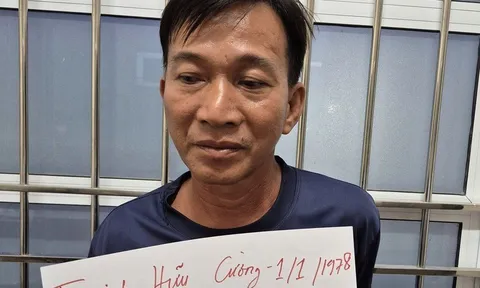 Hữu Cường - 1/1/1978